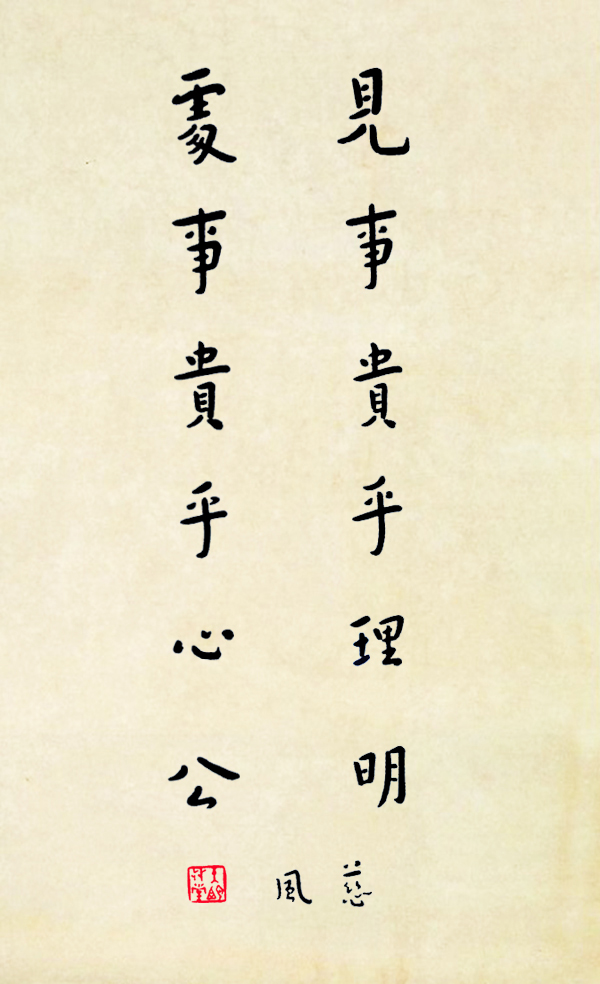 見事貴乎理明
處事貴乎心公
慈風